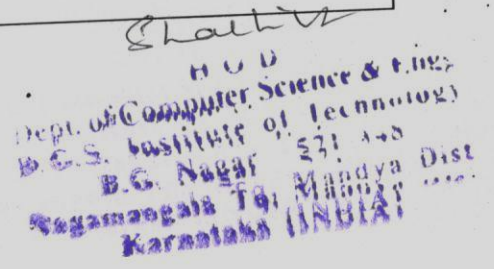 H O D
Dept. of Computer Science & Engg
B.G.S. Institute of Technology
B.G. Nagar 571 448
Nagamangala Tq, Mandya Dist
Karnataka (INDIA)